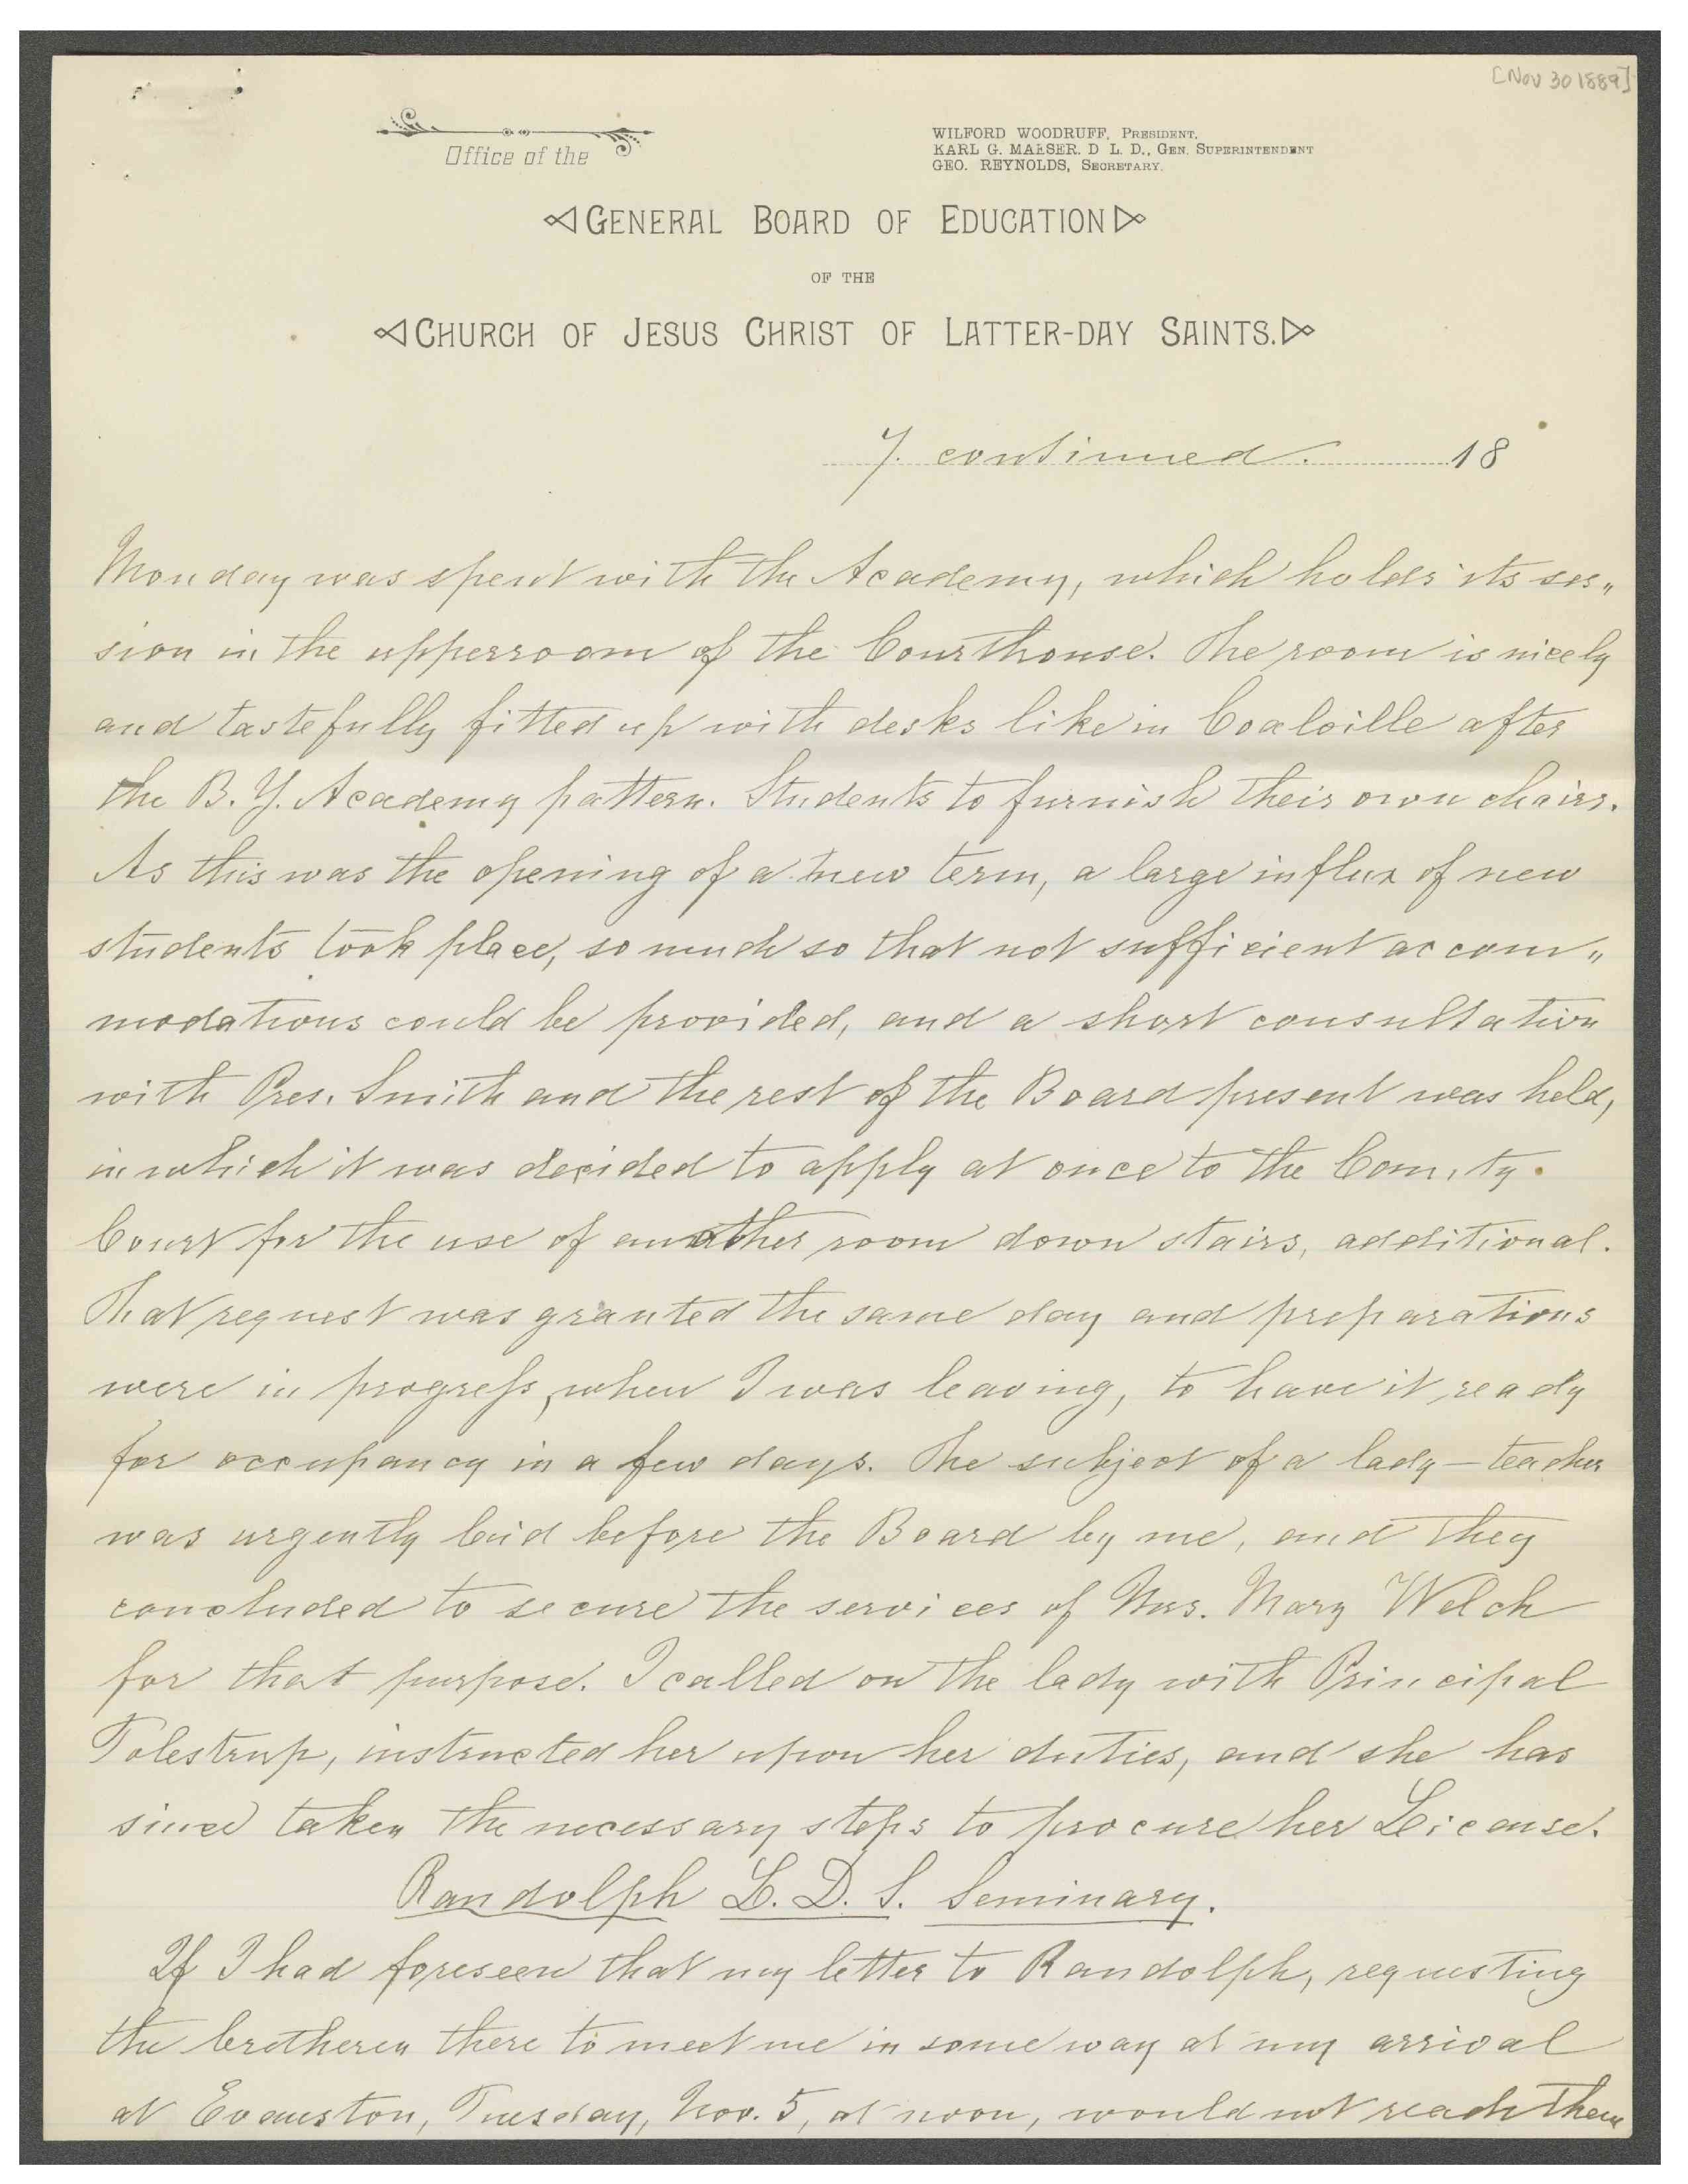 [Nov 30 1889]
Office of the
WILFORD WOODRUFF, PRESIDENT,
KARL G. MAESER. D L. D., GEN. SUPERINTENDENT
GEO. REYNOLDS, SECRETARY.
GENERAL BOARD OF EDUCATION
OF THE
CHURCH OF JESUS CHRIST OF LATTER-DAY SAINTS.
7. continued. 18
Monday was spent with the Academy, which holds its ses„
sion in the upperroom of the Courthouse. The room is nicely
and tastefully fitted up with desks like in Coalville after
the B. Y. Academy pattern. Students to furnish their own chairs.
As this was the opening of a new term, a large influx of new
students took place, so much so that not sufficient accom„
modations could be provided, and a short consultation
with Pres. Smith and the rest of the Board present was held,
in which it was decided to apply at once to the County
Court for the use of another room down stairs, additional.
That request was granted the same day and preparations
were in progress, when I was leaving, to have it ready
for occupancy in a few days. The subject of a lady-teacher
was urgently laid before the Board by me, and they
concluded to secure the services of Mrs. Mary Welch
for that purpose. I called on the lady with Principal
Tolestrup, instructed her upon her duties, and she has
since taken the necessary steps to procure her License.
Randolph L. D. S. Seminary.
If I had foreseen that my letter to Randolph, requesting
the bretheren there to meet me in some way at my arrival
at Evanston, Tuesday, Nov. 5, at noon, would not reach them